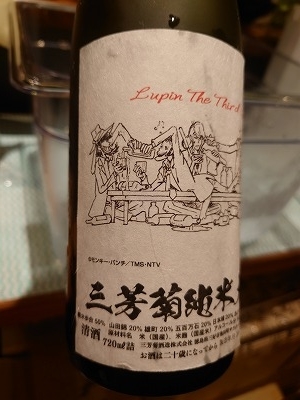 Lupin The Third
©モンキー・パンチ/TMS・NTV
三芳菊純米
精米歩合 50% 山田錦 20% 雄町 20% 五百万石 20% 日本晴 20%
清酒 原材料名 米(国産米)、米麹(国産米)アルコール
720ml詰 三芳菊酒造株式会社
お酒は二十歳になってから